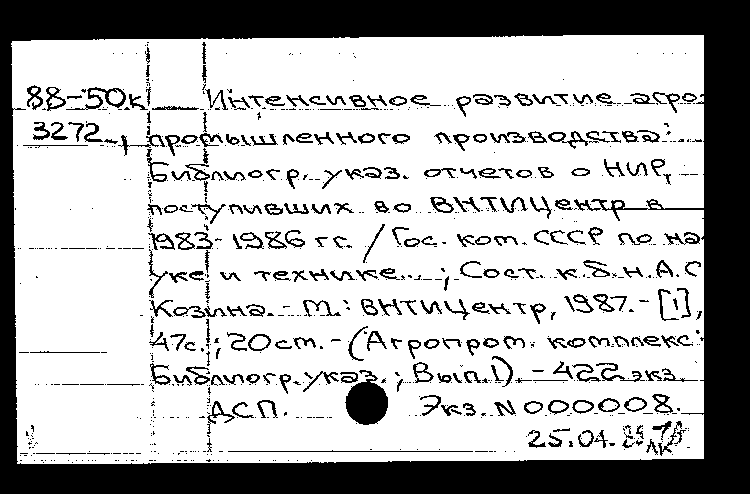 88-50к Интенсивное развитие агро-
3272-1 промышленного производства:
Библиогр. указ. отчетов о НИР,
поступивших во ВНТИЦентр в
1983-1986 гг. / Гос. ком. СССР по на-
уке и технике...; Сост. к.б.н. А.С.
Козина. - М.: ВНТИЦентр, 1987. - [1],
47с.; 20см. - (Агропром. комплекс:
Библиогр. указ.; Вып.1). - 422 экз.
ДСП. Экз. N 000008.
25.04.
ЛК